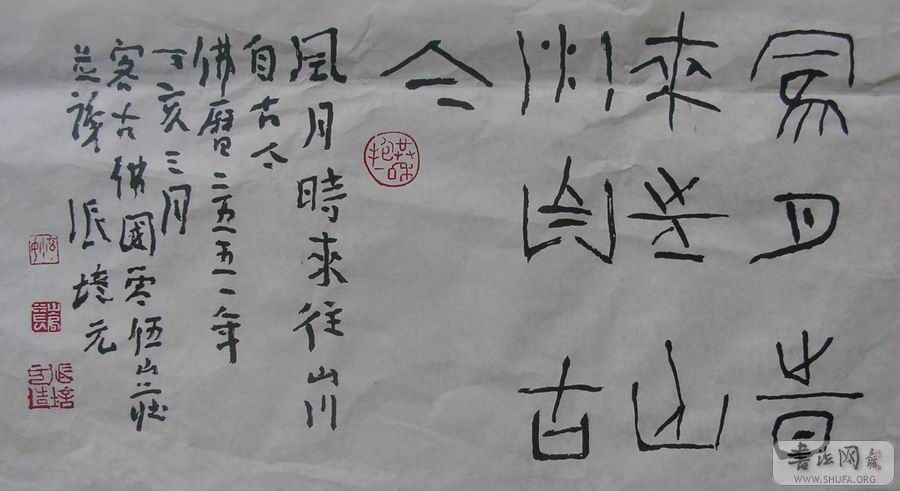 風月時
來往山
川自古
今
風月時來往山川
自古今
佛曆二五五一年
丁亥三月
客古佛國山莊
並識 張培元
書法网
WWW.SHUFA.ORG